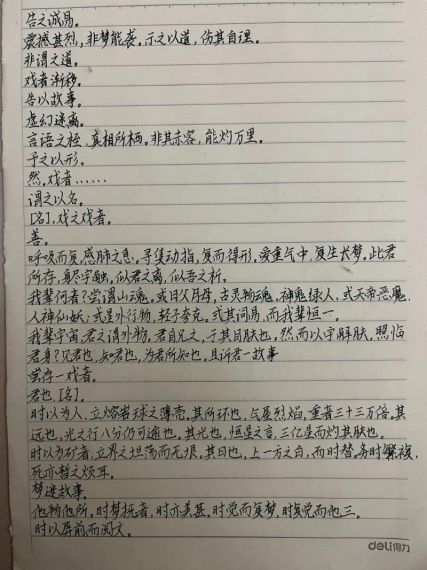 告之诚易。
震撼甚烈，非梦能袭。示之以道，伤其自理。
非谓之道。
戏者渐移。
告以故事。
虚幻迷离。
言语之桎，真相所栖。非其赤容，能灼万里。
予之以形。
然，戏者……
谓之以名。
[名]，戏之戏者。
善。
呼吸而复，感肺之息。寻集动指，复而得形。受重气中，复生长梦。此君
所存，身尽宇触，似君之离，似吾之析。
我辈何者？尝谓山魂，或曰父月母，古灵物魂，神鬼绿人，式天帝恶魔，
人神仙妖，式星外行物，轻子夸克。式其词易，而我辈恒一。
我辈宇宙，君之谓外物，君自兄之，于其目肤也，然而以字解肤，照临
君身？兄君也，知君也，为君所知也，且诉君一故事
尝存一戏者。
君也[名]。
时以为人，立熔岩球之薄壳。其所环也，气屋烈焰，重者三十三万倍。其
远也，光之行八分仍可逾也。其光也，恒星之言，三亿里而灼其肤也。
时以为矿者，立界之坦荡而无垠。其日也，上一方之白，而时替。务时繁複，
死亦暂之烦耳。
梦迷故事。
他物他所，时梦抚者，时亦美甚。时觉而复梦，时复觉而他三。
时以屏前而阅文。
deli得力